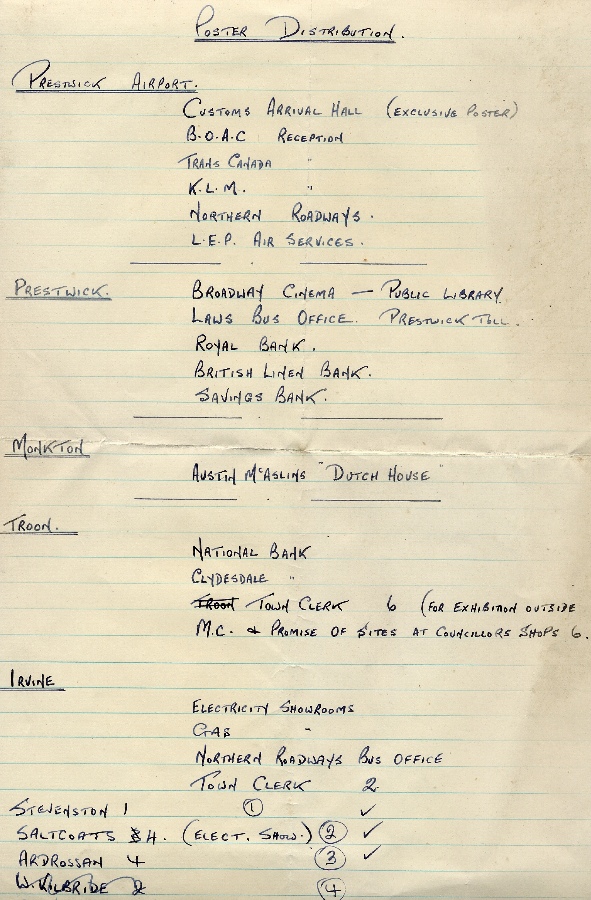 POSTER DISTRIBUTION.
PRESTWICK AIRPORT.
CUSTOMS ARRIVAL HALL (EXCLUSIVE POSTER)
B.O.A.C RECEPTION
TRANS CANADA "
K.L.M. "
NORTHERN ROADWAYS.
L.E.P. AIR SERVICES.
PRESTWICK. BROADWAY CINEMA — PUBLIC LIBRARY
LAWS BUS OFFICE. PRESTWICK TOLL.
ROYAL BANK.
BRITISH LINEN BANK.
SAVINGS BANK.
MONKTON
AUSTIN McASLINS "DUTCH HOUSE"
TROON.
NATIONAL BANK
CLYDESDALE "
TROON TOWN CLERK 6 (FOR EXHIBITION OUTSIDE
M.C. & PROMISE OF SITES AT COUNCILLORS SHOPS 6.
IRVINE
ELECTRICITY SHOWROOMS
GAS "
NORTHERN ROADWAYS BUS OFFICE
TOWN CLERK 2
STEVENSTON 1 ① ✓
SALTCOATS 4. (ELECT. SHOW.) ② ✓
ARDROSSAN 4 ③ ✓
W. KILBRIDE 2 ④